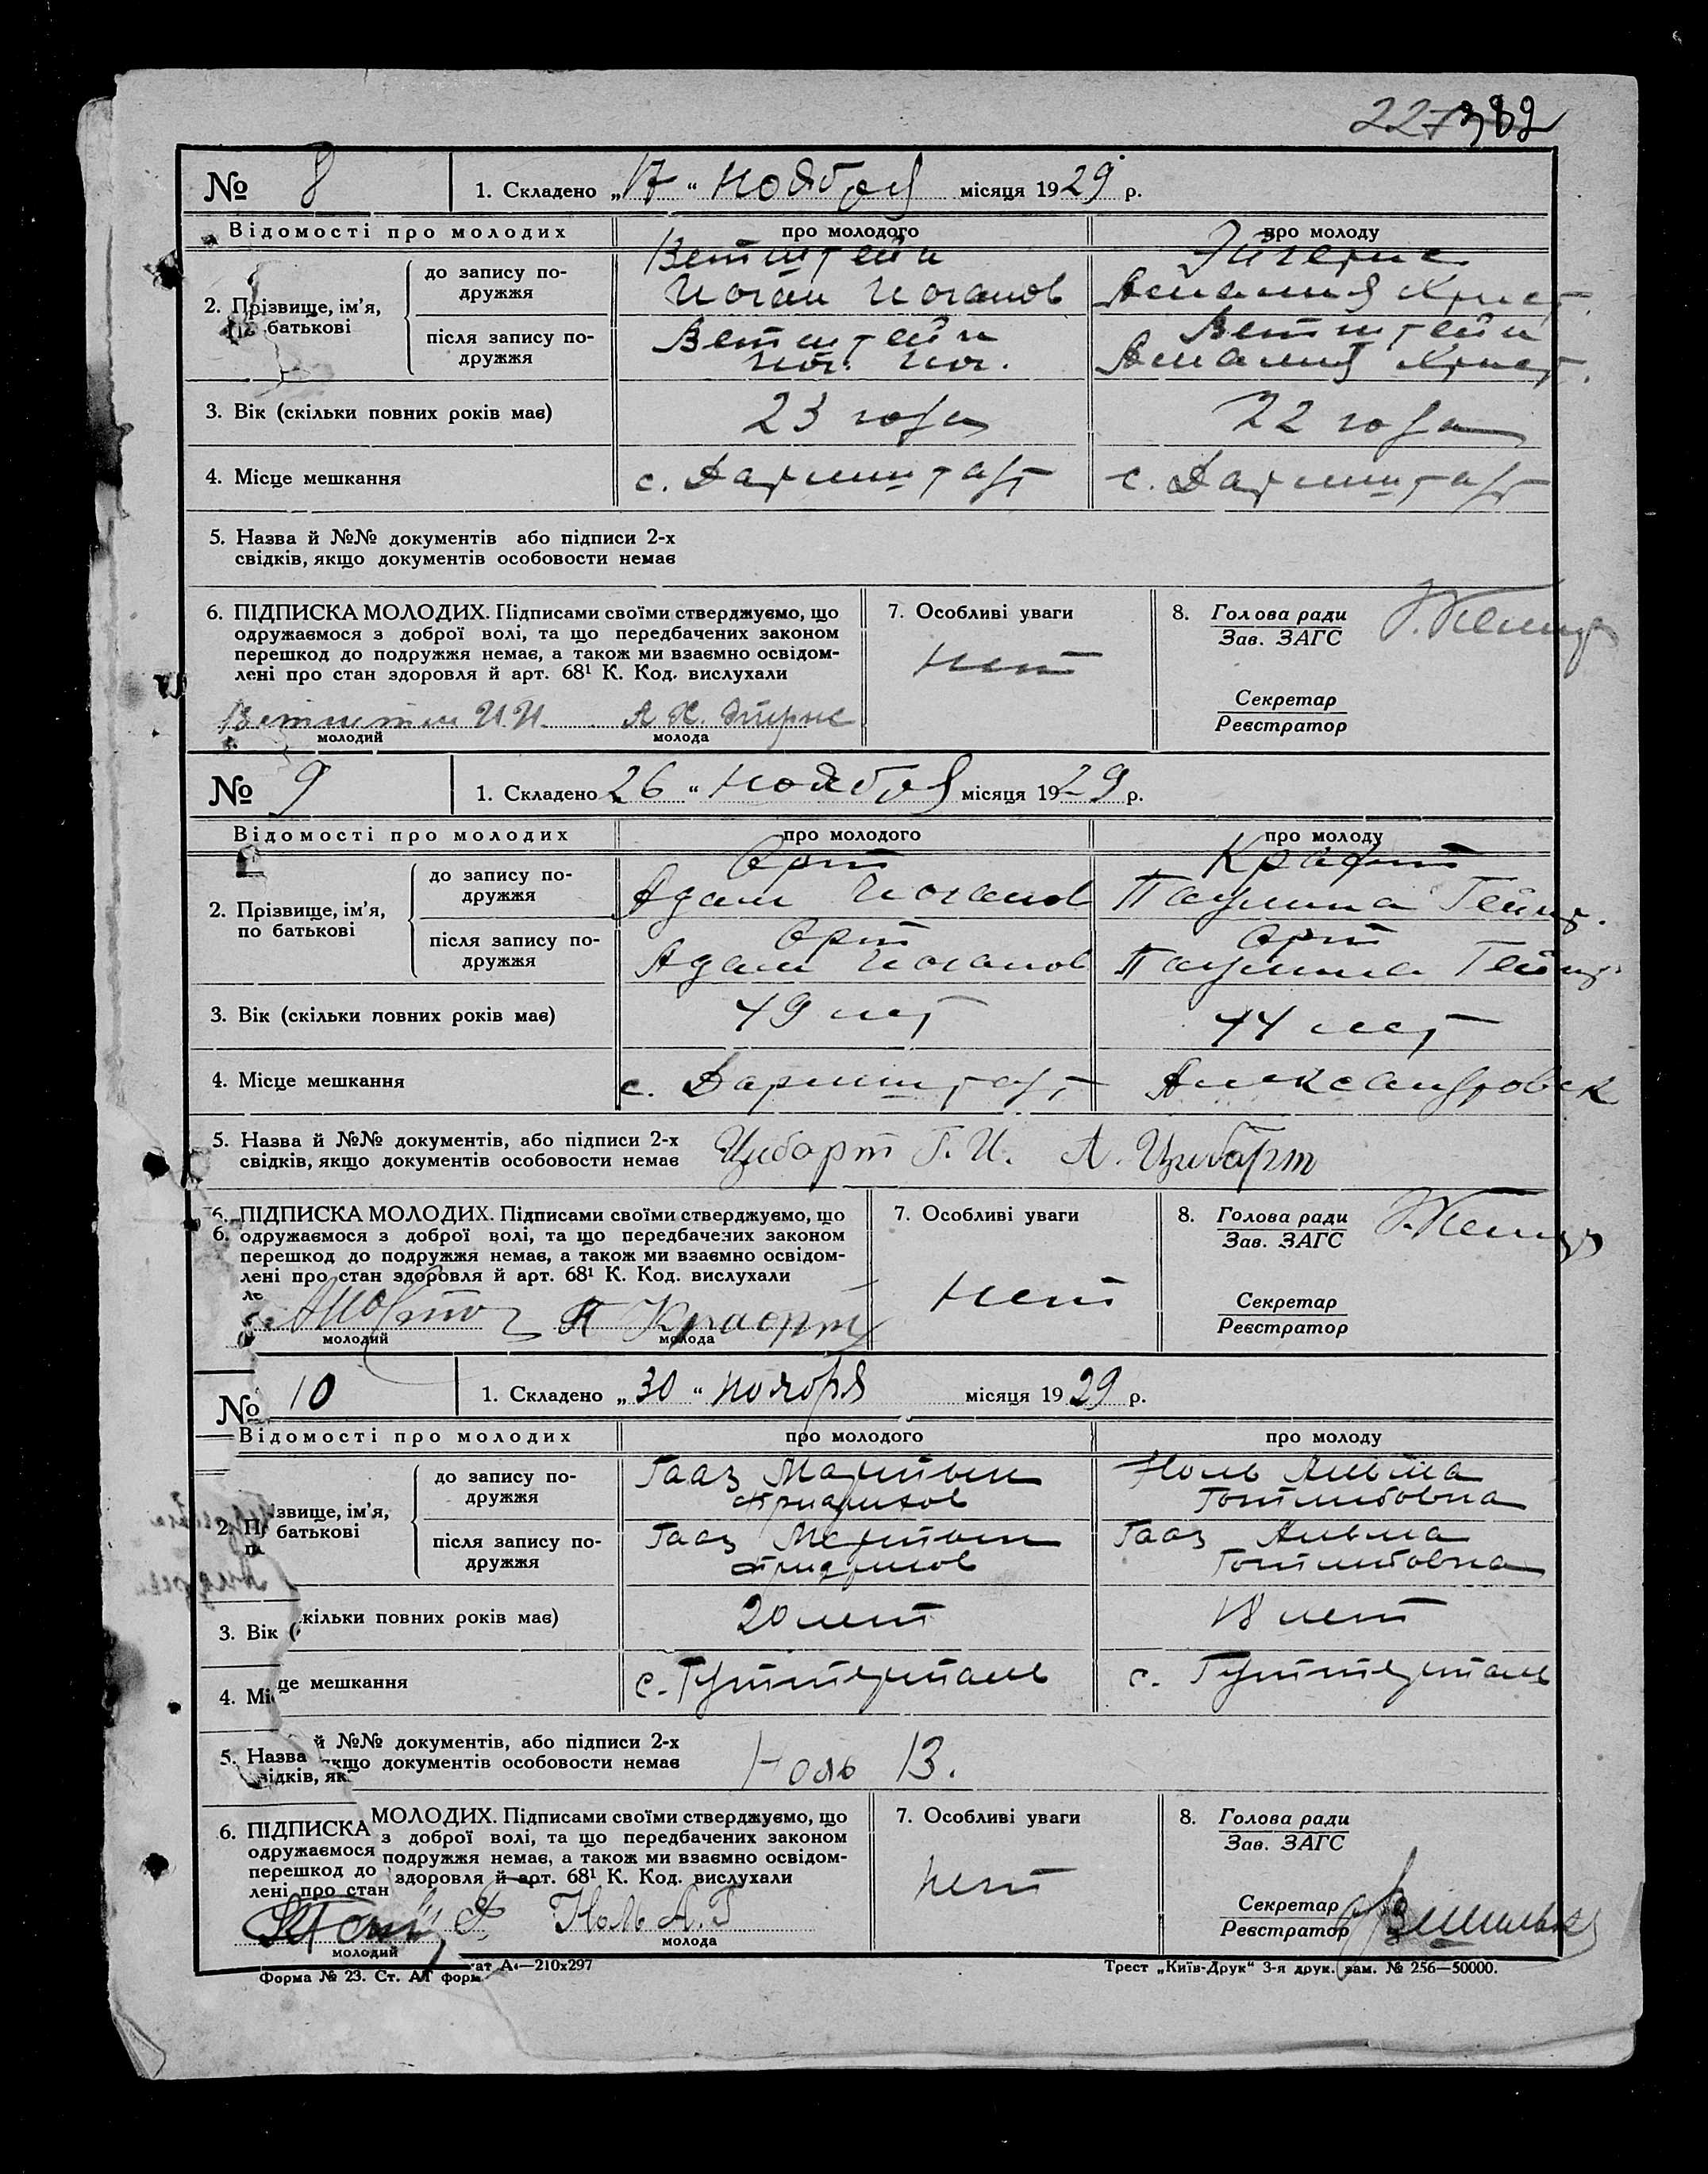 382
№ 8 1. Складено „17“ ноября місяця 1929 р.
Відомості про молодих про молодого про молоду
2. Прізвище, ім'я, по батькові
до запису подружжя
Ветштейн
Иоган Иоганов
Амалия Крист.
після запису подружжя
Ветштейн
Иог. Иог.
Ветштейн
Амалия Крист.
3. Вік (скільки повних років має) 23 года 22 года
4. Місце мешкання с. Дармштадт с. Дармштадт
5. Назва й №№ документів або підписи 2-х
свідків, якщо документів особовости немає
6. ПІДПИСКА МОЛОДИХ. Підписами своїми стверджуємо, що
одружаємося з доброї волі, та що передбачених законом
перешкод до подружжя немає, а також ми взаємно освідом-
лені про стан здоровля й арт. 68¹ К. Код. вислухали
7. Особливі уваги
нет
8. Голова ради
Зав. ЗАГС
Секретар
Реєстратор
И.И. А Х.
молодий молода
№ 9 1. Складено 26 “ ноября місяця 1929 р.
Відомості про молодих про молодого про молоду
2. Прізвище, ім'я,
по батькові
до запису по-
дружжя
Орт
Адам Иоганов
Крафт
Паулина Гейнр.
після запису по-
дружжя
Орт
Адам Иоганов
Орт
Паулина Гейнр.
3. Вік (скільки повних років має) 49 лет 44 лет
4. Місце мешкання с. Дармштадт Александровск
5. Назва й №№ документів, або підписи 2-х
свідків, якщо документів особовости немає
Цибарт Г.И. А. Цибарт
6. ПІДПИСКА МОЛОДИХ. Підписами своїми стверджуємо, що
6. одружаємося з доброї волі, та що передбачених законом
перешкод до подружжя немає, а також ми взаємно освідом-
лені про стан здоровля й арт. 68¹ К. Код. вислухали
7. Особливі уваги
нет
8. Голова ради
Зав. ЗАГС
Секретар
Реєстратор
П Крафт
молодий молода
№ 10 1. Складено „30“ ноября місяця 1929 р.
Відомості про молодих про молодого про молоду
2. Прізвище, ім'я,
батькові
до запису по-
дружжя
Гааз Мартын
Фридрихов
Ноль Альма
Готлибовна
після запису по-
дружжя
Гааз Мартын
Фридрихов
Гааз Альма
Готлибовна
3. Вік (скільки повних років має) 20 лет 18 лет
4. Місце мешкання с. Гуттерталь с. Гуттерталь
5. Назва й №№ документів, або підписи 2-х
свідків, якщо документів особовости немає
Ноль В.
6. ПІДПИСКА МОЛОДИХ. Підписами своїми стверджуємо, що
одружаємося з доброї волі, та що передбачених законом
перешкод до подружжя немає, а також ми взаємно освідом-
лені про стан здоровля й арт. 68¹ К. Код. вислухали
7. Особливі уваги
нет
8. Голова ради
Зав. ЗАГС
Секретар
Реєстратор
Ноль А.Г
молодий молода
Форма № 23. Ст. АГ форм ат А4—210х297 Трест „Київ-Друк“ 3-я друк. зам. № 256—50000.